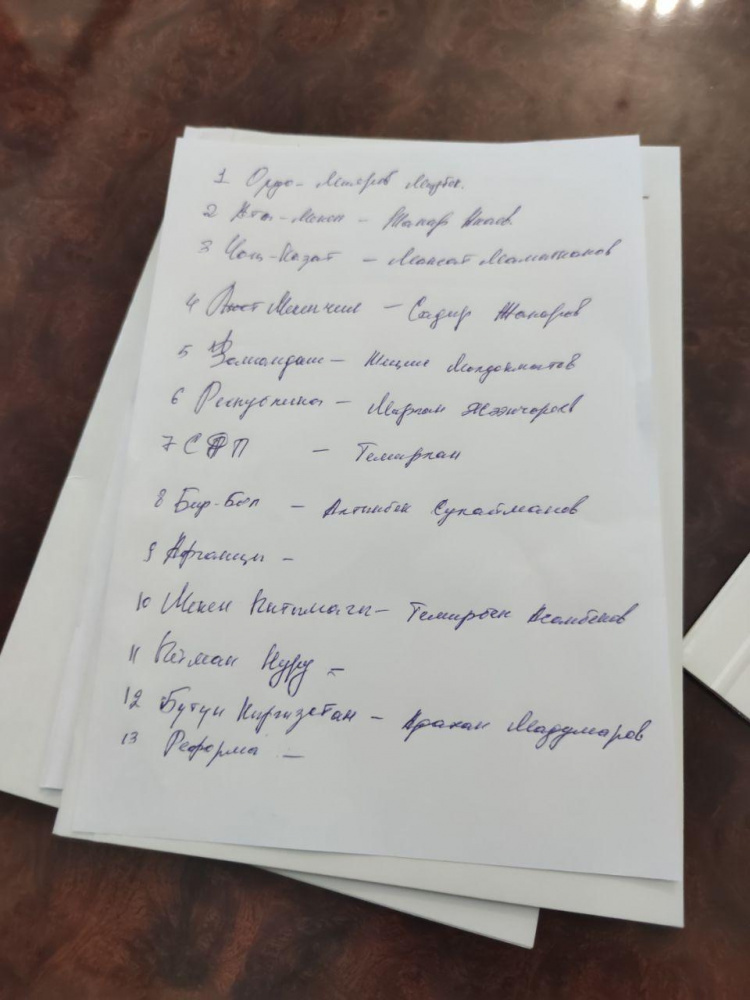 1 Ордо -
2 Ата-Мекен - Жанар Акаев.
3 Чоң-Казат - Максат Маматканов
4 Мекенчил - Садыр Жапаров
5 Замандаш - Жеңиш Молдокматов
6 Республика - Мирлан Жээнчороев
7 СДП - Темирлан
8 Бир-Бол - Алтынбек Сулайманов
9 Афганцы -
10 Мекен Ынтымагы - Темирбек Асанбеков
11 Ыйман Нуру -
12 Бутун Кыргызстан - Адахан Мадумаров
13 Реформа -